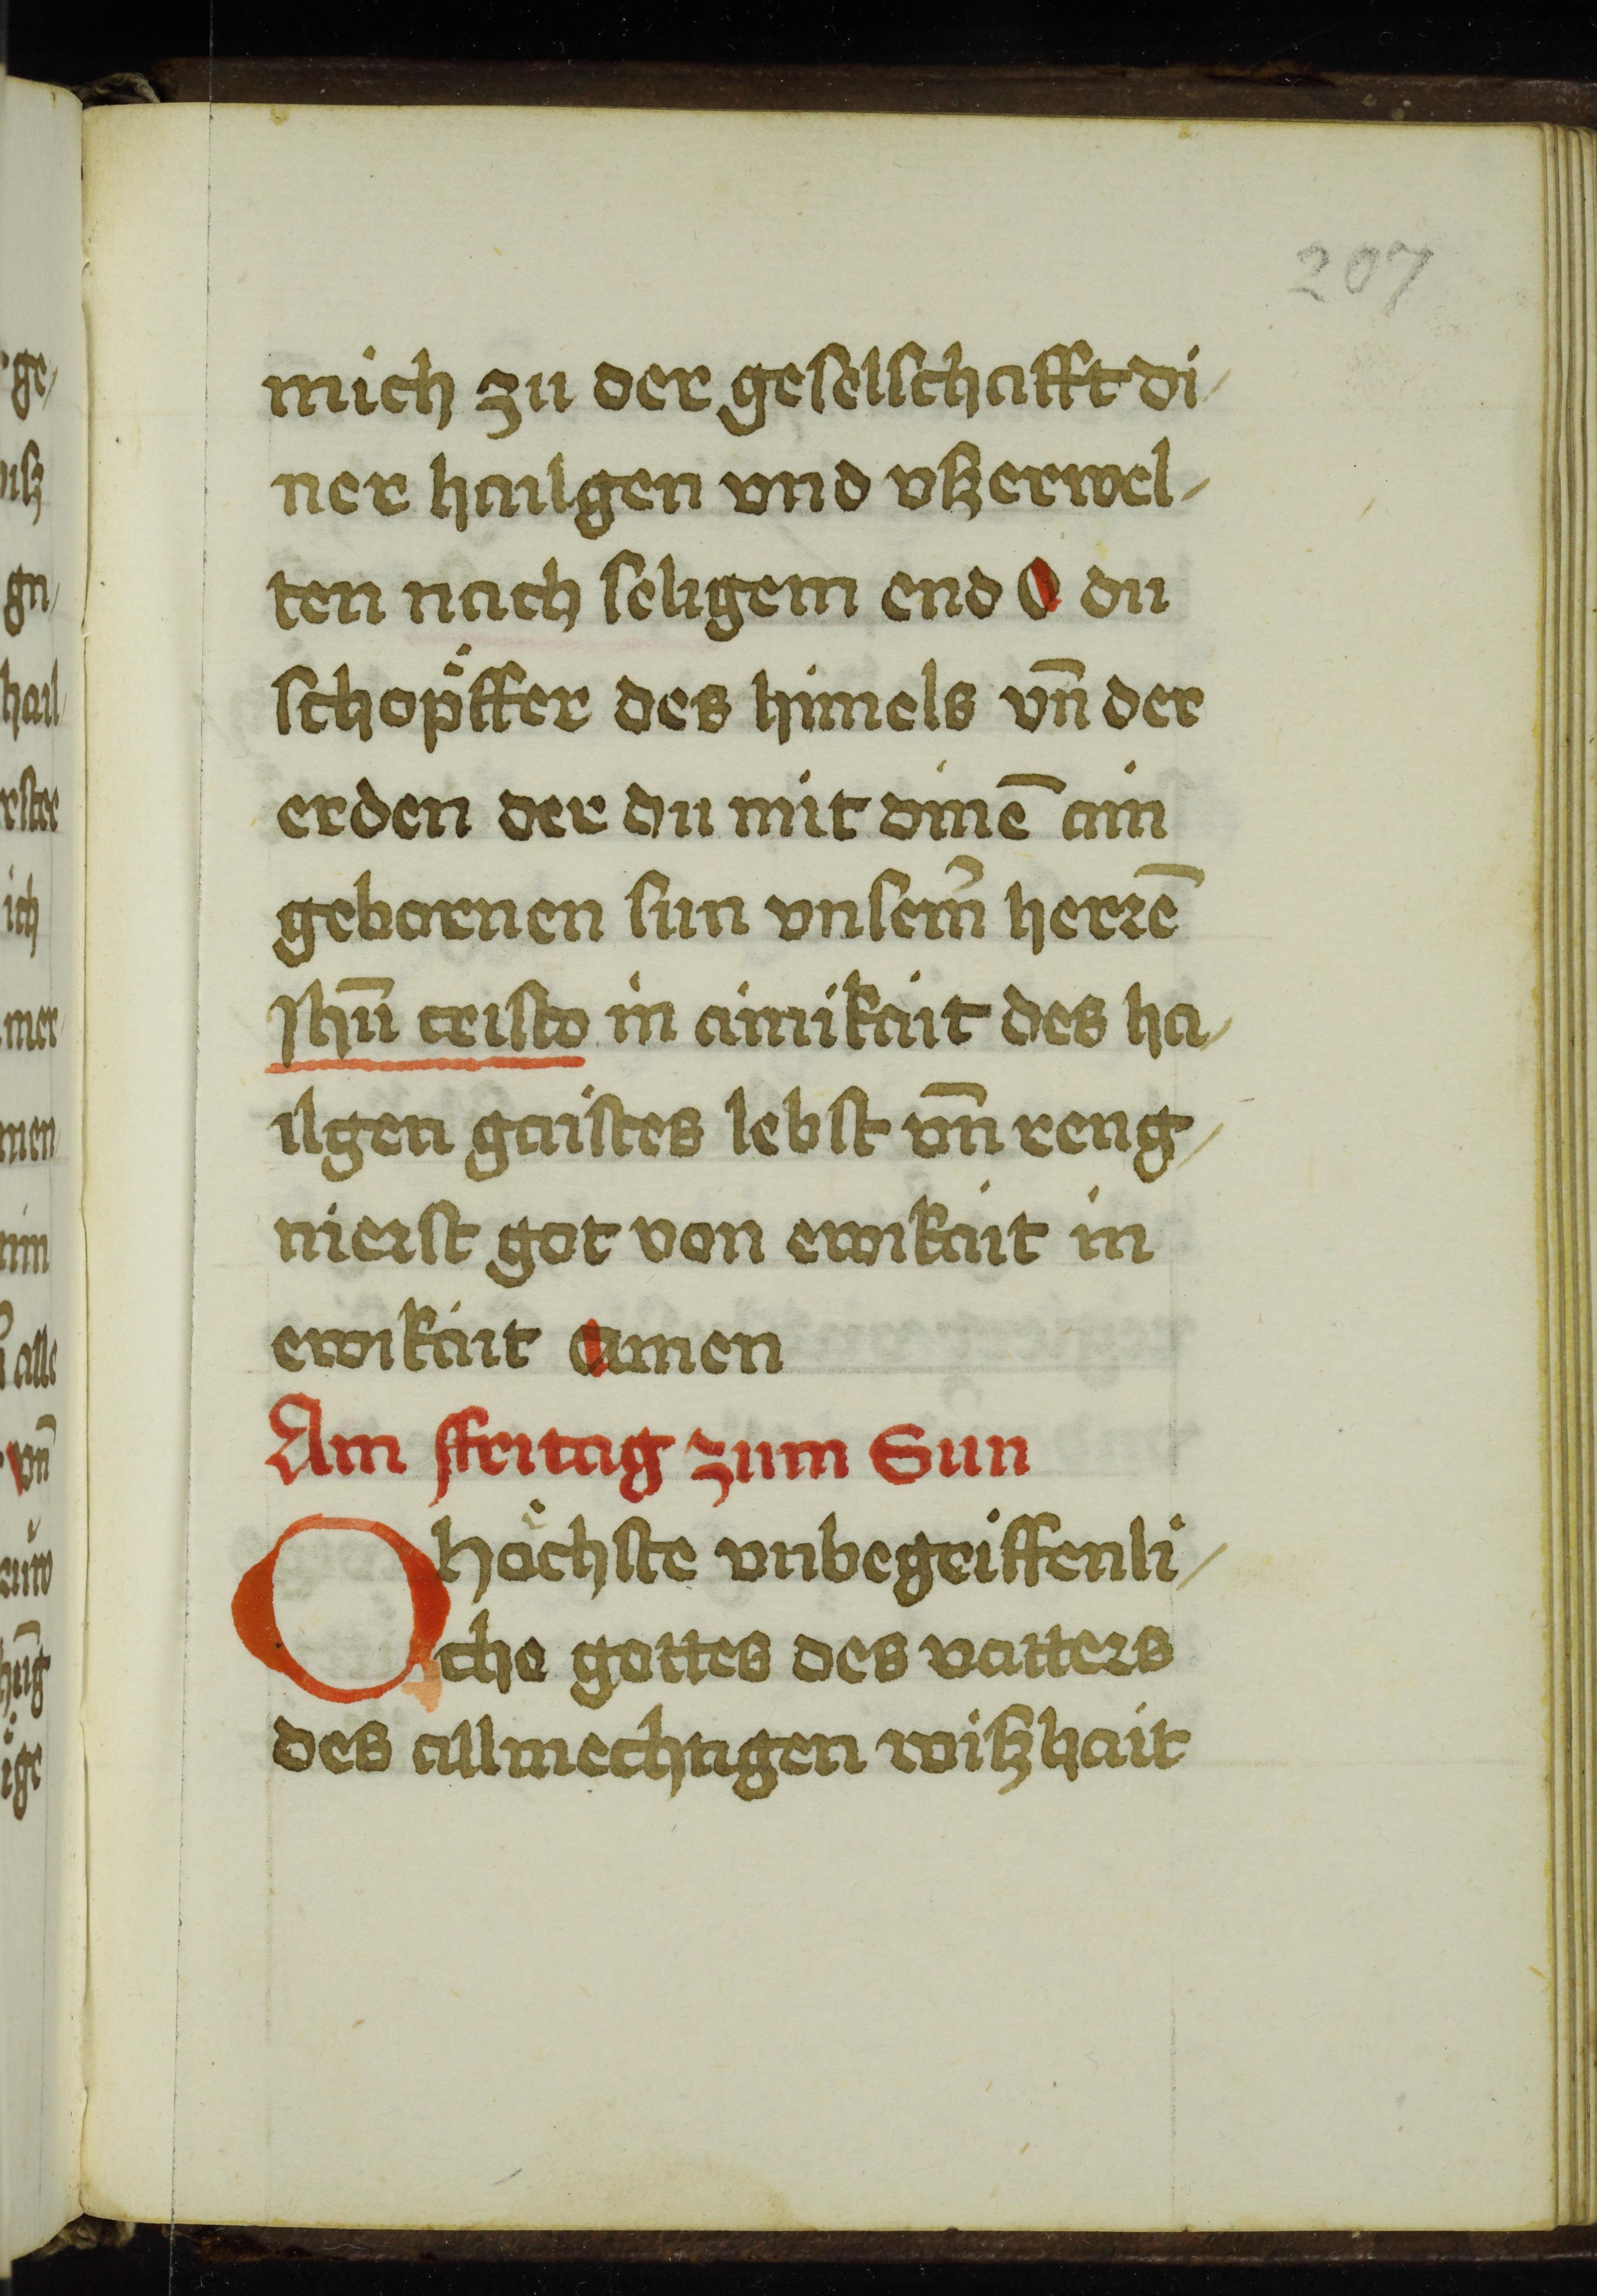 207
mich zu der geselschafft di⸗
ner hailgen vnd vßerwel⸗
ten nach seligem end O du
schöpffer des himels vn̄ der
erden der du mit dinē ain
gebornen sun vnserm̄ herrē
Jhū cristo in ainikait des ha⸗
ilgen gaistes lebst vn̄ reng⸗
nierst got von ewikait in
ewikait amen
Am ffritag zum Sun
O höchste vnbegriffenli⸗
che gottes des vatters
des allmechtigen wißhait